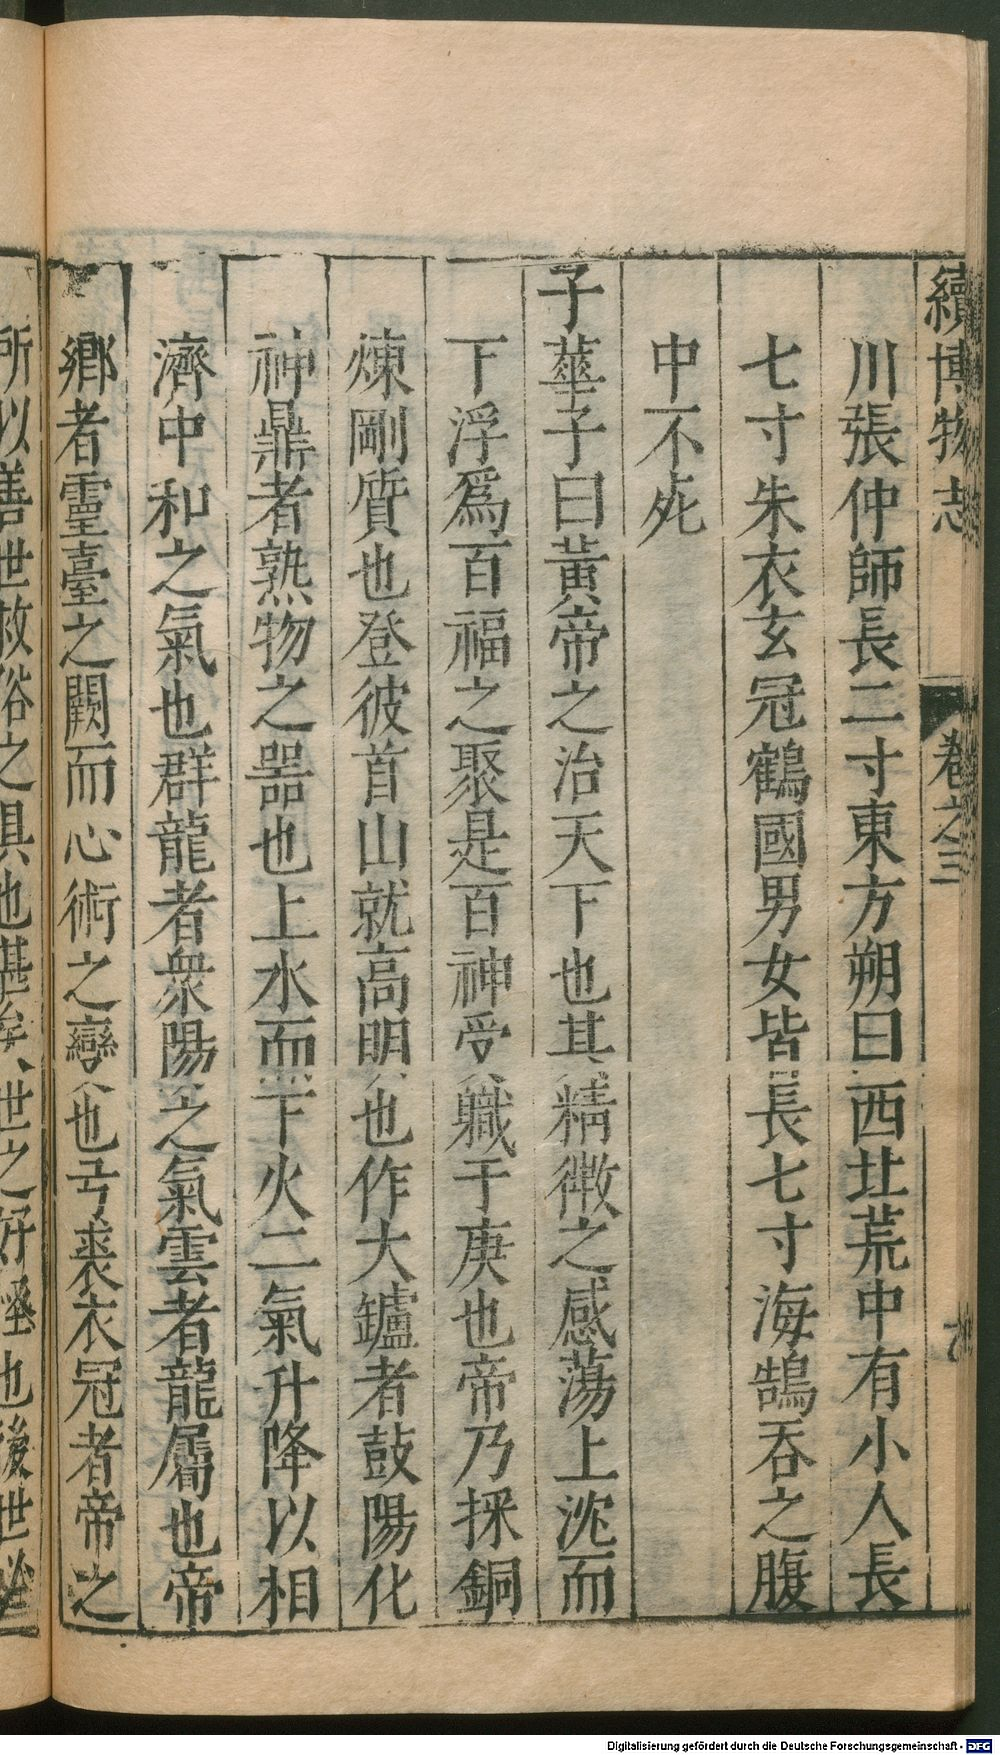 續博物志 卷之三
川張仲師長二寸東方朔曰西北荒中有小人長
七寸朱衣玄冠鶴國男女皆長七寸海鵠吞之腹
中不死
子華子曰黃帝之治天下也其精微之感蕩上沈而
下浮爲百福之聚是百神受職于庚也帝乃採銅
煉剛質也登彼首山就高明也作大鑪者鼓陽化
神鼎者熟物之器也上水而下火二氣升降以相
濟中和之氣也群龍者衆陽之氣雲者龍屬也帝
鄉者靈臺之關而心術之變也弓裘衣冠者帝之
所以善世救俗之具也甚矣世之好怪也後世必
Digitalisierung gefördert durch die Deutsche Forschungsgemeinschaft - DFG